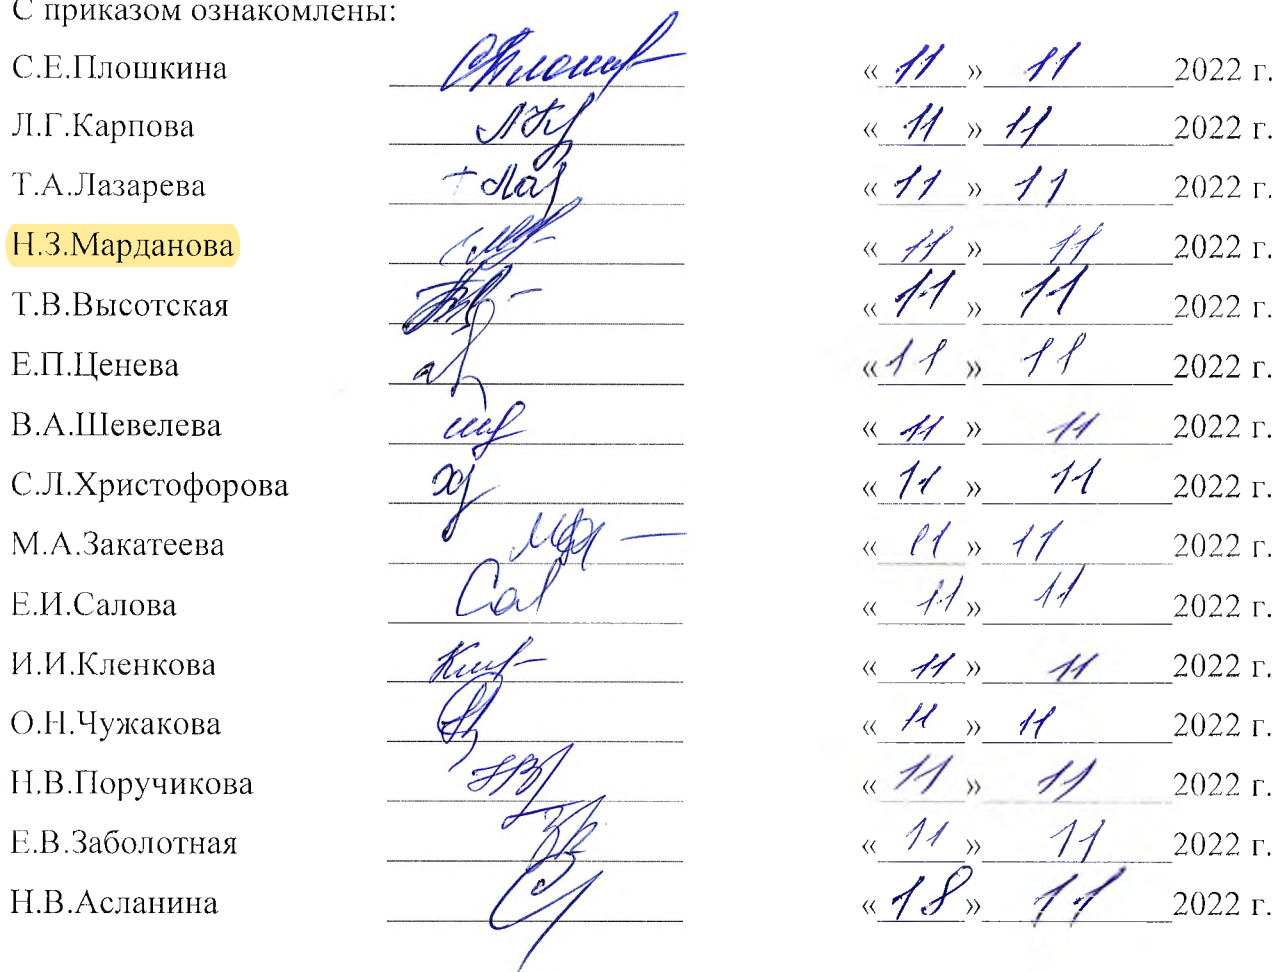 С приказом ознакомлены:
С.Е.Плошкина « 11 » 11 2022 г.
Л.Г.Карпова « 11 » 11 2022 г.
Т.А.Лазарева « 11 » 11 2022 г.
Н.З.Марданова « 11 » 11 2022 г.
Т.В.Высотская « 11 » 11 2022 г.
Е.П.Ценева « 11 » 11 2022 г.
В.А.Шевелева « 11 » 11 2022 г.
С.Л.Христофорова « 11 » 11 2022 г.
М.А.Закатеева « 11 » 11 2022 г.
Е.И.Салова Сал « 11 » 11 2022 г.
И.И.Кленкова « 11 » 11 2022 г.
О.Н.Чужакова « 11 » 11 2022 г.
Н.В.Поручикова « 11 » 11 2022 г.
Е.В.Заболотная « 11 » 11 2022 г.
Н.В.Асланина « 18 » 11 2022 г.